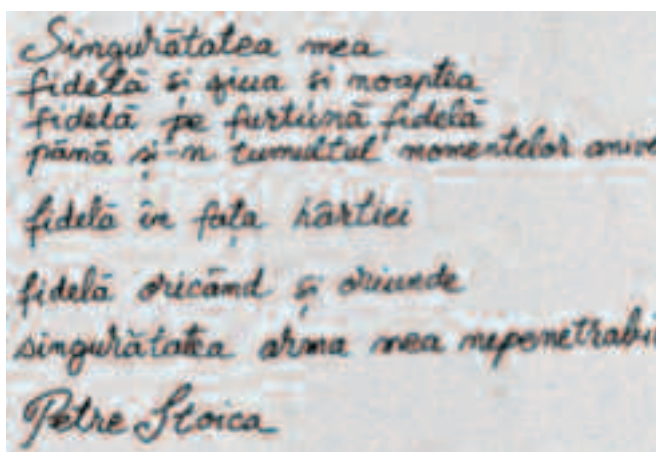 Singurătatea mea
fidelă și ziua și noaptea
fidelă pe furtună fidelă
până și-n tumultul momentelor anive
fidelă în fața hârtiei
fidelă oricând și oriunde
singurătatea arma mea nepenetrabi
Petre Stoica